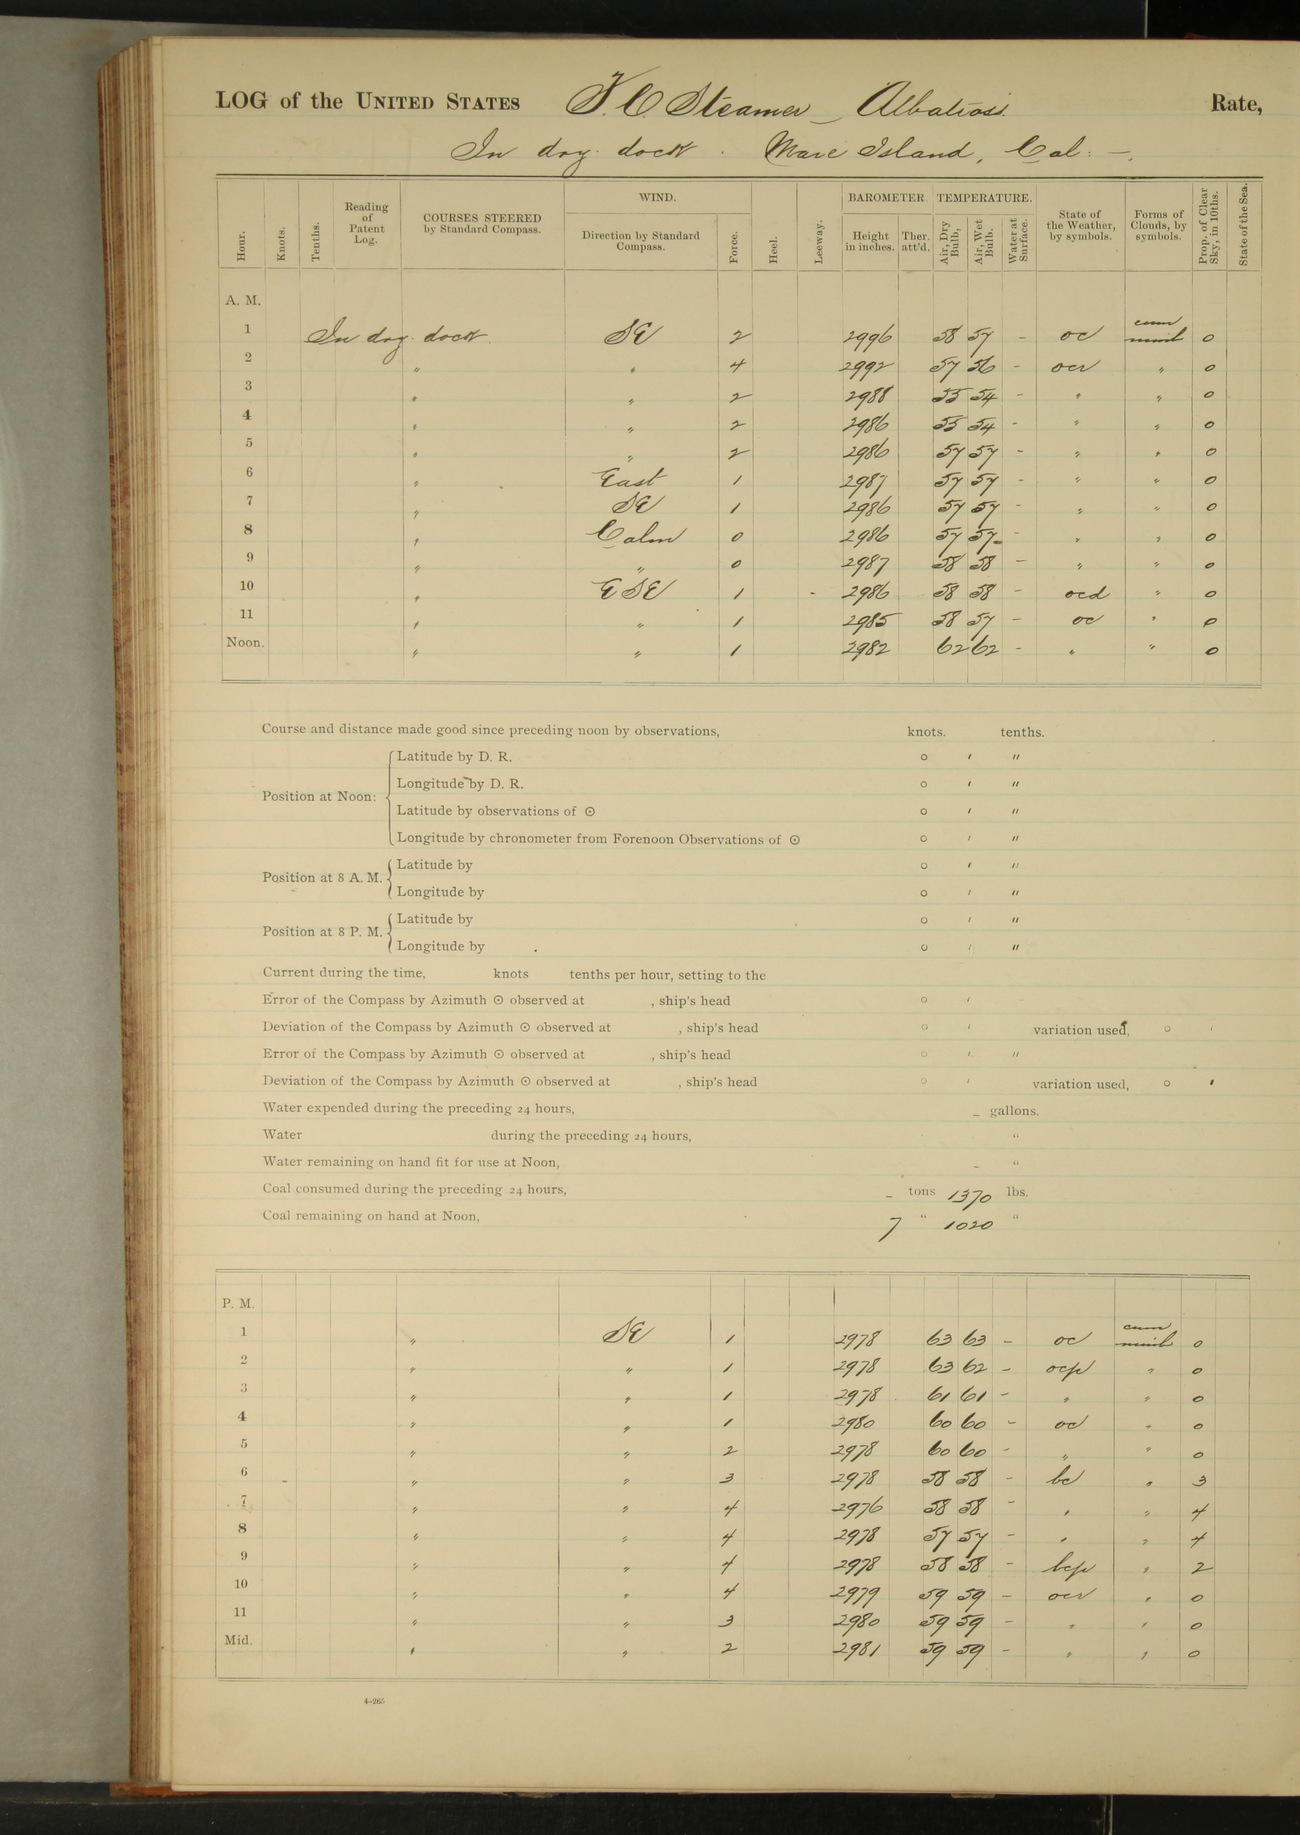 LOG of the UNITED STATES F. C. Steamer Albatross. Rate,
In dry dock. Mare Island, Cal: —.
Hour. Knots. Tenths. Reading of Patent Log. COURSES STEERED by Standard Compass. WIND. Direction by Standard Compass. Force. Heel. Leeway. BAROMETER. Height in inches. Ther. att'd. TEMPERATURE. Air, Dry Bulb, Air, Wet Bulb. Water at Surface. State of the Weather, by symbols. Forms of Clouds, by symbols. Prop. of Clear Sky, in 10ths. State of the Sea.
A. M.
1 In dry dock SE 2 2996 58 57 - oc cum nimb 0
2 " " 4 2992 57 56 - ocr " 0
3 " " 2 2988 55 54 - " " 0
4 " " 2 2986 55 54 - " " 0
5 " " 2 2986 57 57 - " " 0
6 " East 1 2987 57 57 - " " 0
7 " SE 1 2986 57 57 - " " 0
8 " Calm 0 2986 57 57 - " " 0
9 " " 0 2987 58 58 - " " 0
10 " ESE 1 2986 58 58 - ocd " 0
11 " " 1 2985 58 57 - oc " 0
Noon. " " 1 2982 62 62 - " " 0
Course and distance made good since preceding noon by observations, knots. tenths.
Position at Noon: Latitude by D. R. ° ′ ″
Longitude by D. R. ° ′ ″
Latitude by observations of ⊙ ° ′ ″
Longitude by chronometer from Forenoon Observations of ⊙ ° ′ ″
Position at 8 A. M. Latitude by ° ′ ″
Longitude by ° ′ ″
Position at 8 P. M. Latitude by ° ′ ″
Longitude by ° ′ ″
Current during the time, knots tenths per hour, setting to the
Error of the Compass by Azimuth ⊙ observed at , ship's head ° ′
Deviation of the Compass by Azimuth ⊙ observed at , ship's head ° ′ variation used, ° ′
Error of the Compass by Azimuth ⊙ observed at , ship's head ° ′ ″
Deviation of the Compass by Azimuth ⊙ observed at , ship's head ° ′ variation used, ° ′
Water expended during the preceding 24 hours, - gallons.
Water during the preceding 24 hours, "
Water remaining on hand fit for use at Noon, - "
Coal consumed during the preceding 24 hours, - tons 1370 lbs.
Coal remaining on hand at Noon, 7 " 1020 "
P. M.
1 " SE 1 2978 63 63 - oc cum nimb 0
2 " " 1 2978 63 62 - ocp " 0
3 " " 1 2978 61 61 - " " 0
4 " " 1 2980 60 60 - oc " 0
5 " " 2 2978 60 60 - " " 0
6 " " 3 2978 58 58 - bc " 3
7 " " 4 2976 58 58 - " " 4
8 " " 4 2978 57 57 - " " 4
9 " " 4 2978 58 58 - bcp " 2
10 " " 4 2979 59 59 - ocr " 0
11 " " 3 2980 59 59 - " " 0
Mid. " " 2 2981 59 59 - " " 0
4-265